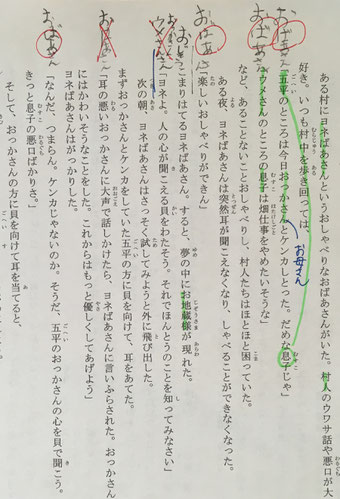 ある村にヨネばあさんというおしゃべりなおばあさんがいた。村人のウワサ話や悪口が大
好き。いつも村中を歩き回っては、
「五平のところは今日おっかさんとケンカしとった。だめな息子じゃ」
お母さん
「ウメさんのところの息子は畑仕事をやめたいそうな」
など、あることないことおしゃべりし、村人たちはほとほと困っていた。
ある夜、ヨネばあさんは突然耳が聞こえなくなり、しゃべることができなくなった。
「楽しいおしゃべりができん」
こまりはてるヨネばあさん。すると、夢の中にお地蔵様が現れた。
「ヨネよ。人の心が聞こえる貝をわたそう。それでほんとうのことを知ってみなさい」
次の朝、ヨネばあさんはさっそく試してみようと外に飛び出した。
まずおっかさんとケンカをしていた五平の方に貝を向けて、耳をあてた。
「耳の悪いおっかさんに大声で話しかけたら、ヨネばあさんに言いふらされた。おっかさん
にはかわいそうなことをした。これからはもっと優しくしてあげよう」
ヨネばあさんはがっかりした。
「なんだ、つまらん。ケンカじゃないのか。そうだ、五平のおっかさんの心を貝で聞こう。
きっと息子の悪口ばかりさ。」
そして、おっかさんの方に貝を向けて耳を当てると、